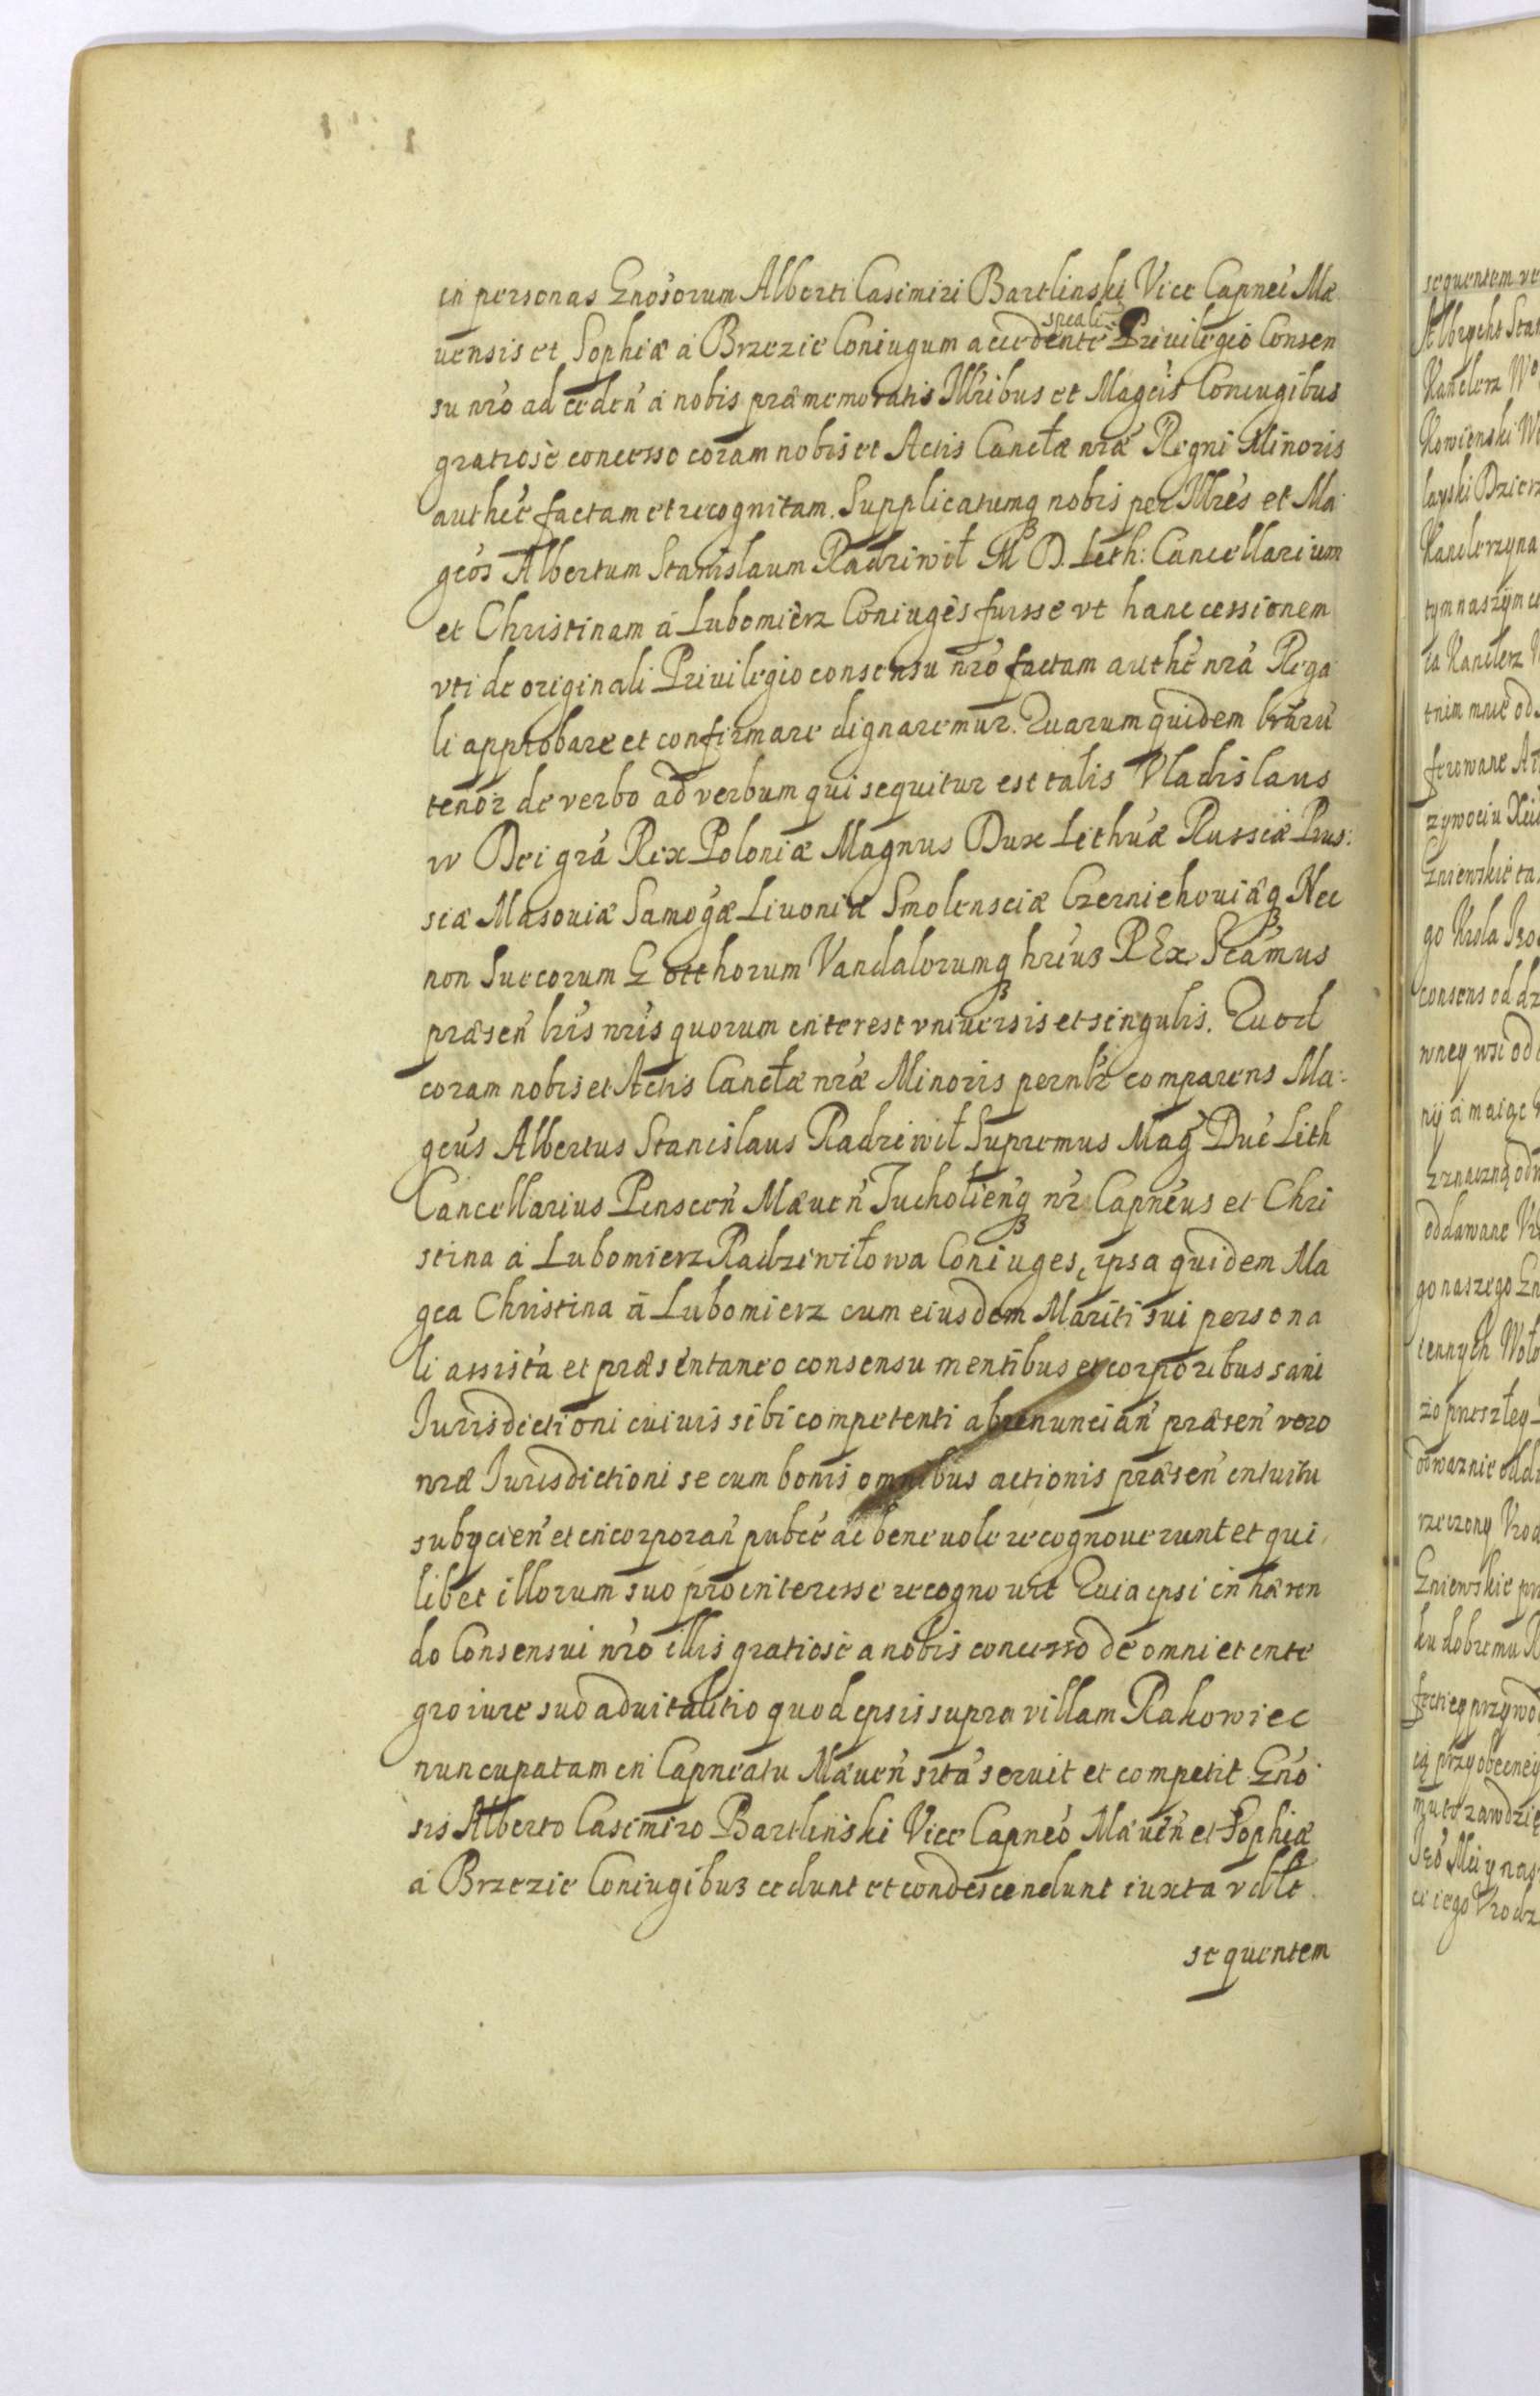 in personas Gnosorum Alberti Casimiri Bartlinski Vice Capnei Mæ
uensis et Sophiæ á Brzezie Coniugum accedente speāli Priuilegio Consen
su nr̄o ad ceden̄ á nobis præmemoratis Illribus et Magcis Coniugibus
gratiosè concesso coram nobis et Actis Canctæ nr̄æ Regni Minoris
authcè factam et recognitam. Supplicatumq3 nobis per Illres et Ma
gcos Albertum Stanislaum Radziwił M D. Leth: Cancellarium
et Christinam á Lubomierz Coniuges fuisse vt hanc cessionem
vti de originali Priuilegio consensu nr̄o factam authē nr̄a Rega
li approbare et confirmare dignaremur. Quarum quidem lrarū
tenor de verbo ad verbum qui sequitur est talis Vladislaus
IV Dei grā Rex Poloniæ Magnus Dux Lithuæ Russiæ Prus:
siæ Masouiæ Samogæ Liuoniæ Smolensciæ Czerniehouiæq3 Nec
non Suecorum Gotthorum Vandalorumq3 hreus REx Scāmus
præsen̄ lris nr̄is quorum interest vniuersis et singulis. Quod
coram nobis et Actis Canctæ nr̄æ Minoris pernlr comparens Ma-
gcus Albertus Stanislaus Radziwił Supremus Mag Duc Lith
Cancellarius Pinscen̄ Mæuen̄ Tucholien̄q3 nr̄ Capneus et Chri
stina á Lubomierz Radziwiłowa Coniuges, ipsa quidem Ma
gca Christina á Lubomierz cum eiusdem Mariti sui persona
li assista et præsentaneo consensu mentibus et corporibus sani
Jurisdictioni cuiuis sibi competenti abrenuncian̄ præsen̄ vero
nr̄æ Jurisdictioni se cum bonis omnibus actionis præsen̄ intuitu
subÿcien̄ et incorporan̄ pubcè ac beneuole recognouerunt et qui
libet illorum suo pro interesse recognouit Quia ipsi in hæren
do Consensui nr̄o illis gratiosè a nobis concesso de omni et inte
gro iure suo aduitalitio quod ipsis supra villam Rakowiec
nuncupatam in Capneatu Mæuen̄ sitā seruit et competit Gno
sis Alberto Casimiro Bartlinski Vice Capneo Mæuen̄ et Sophiæ
á Brzezie Coniugibus cedunt et condescendunt iuxta
sequentem
sequentem
Albrycht
Kanclerz
Kowienski
Kanclerzyna
Kanclerz
ferowane
Gniewskie
go Krola
consens
oddawane
go naszego
rzeczony
Gniewskie